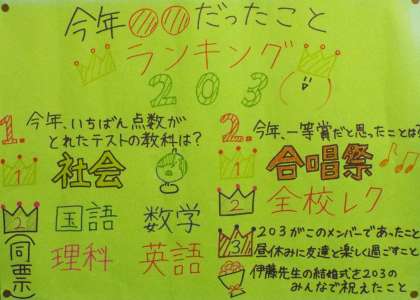 今年〇〇だったこと
ランキング
203
1.
今年、いちばん点数が
とれたテストの教科は?
1 社会
2 国語 数学
(同票) 理科 英語
2.
今年、一等賞だと思ったことは
1 合唱祭
2 全校レク
3 203がこのメンバーであったこと
昼休みに友達と楽しく過ごすこと
伊藤先生の結婚式を203の
みんなで祝えたこと